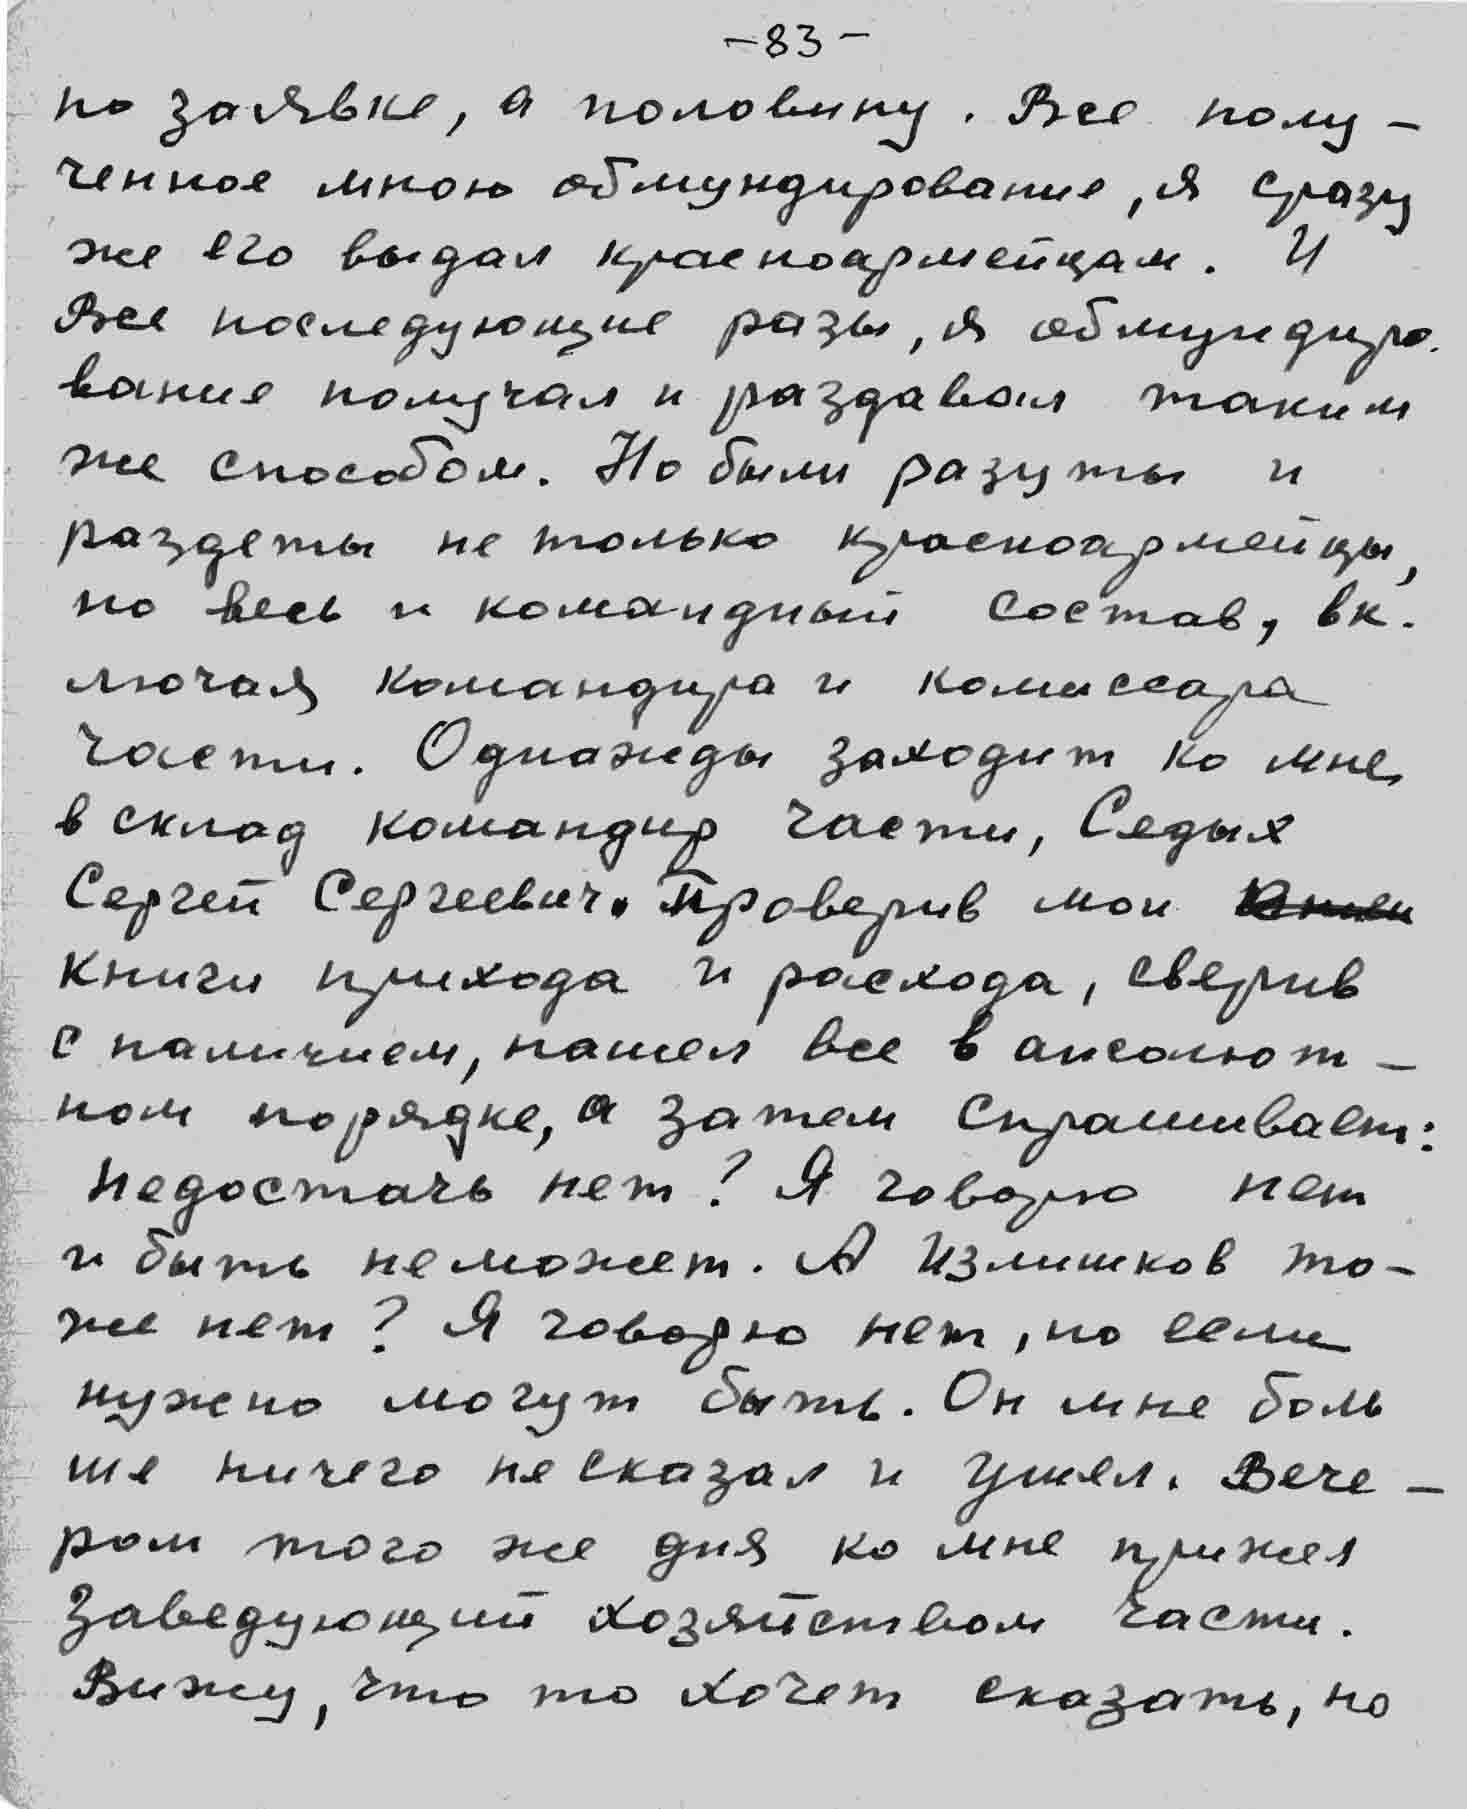 -83-
по заявке, а половину. Все полу-
ченное мною обмундирование, я сразу
же его выдал красноармейцам. И
Все последующие разы, я обмундиро.
вание получал и раздавал таким
же способом. Но были разуты и
раздеты не только красноармейцы,
но весь и командный состав, вк.
лючая командира и комиссара
части. Однажды заходит ко мне
в склад командир части, Седых
Сергей Сергеевич. Проверив мои
книги прихода и расхода, сверив
с наличием, нашел все в апсолют-
ном порядке, а затем спрашивает:
Недостачь нет? Я говорю нет
и быть неможет. А Излишков то-
же нет? Я говорю нет, но если
нужно могут быть. Он мне боль
ше ничего не сказал и ушел. Вече-
ром того же дня ко мне пришел
Заведующий хозяйством части.
Вижу, что то хочет сказать, но